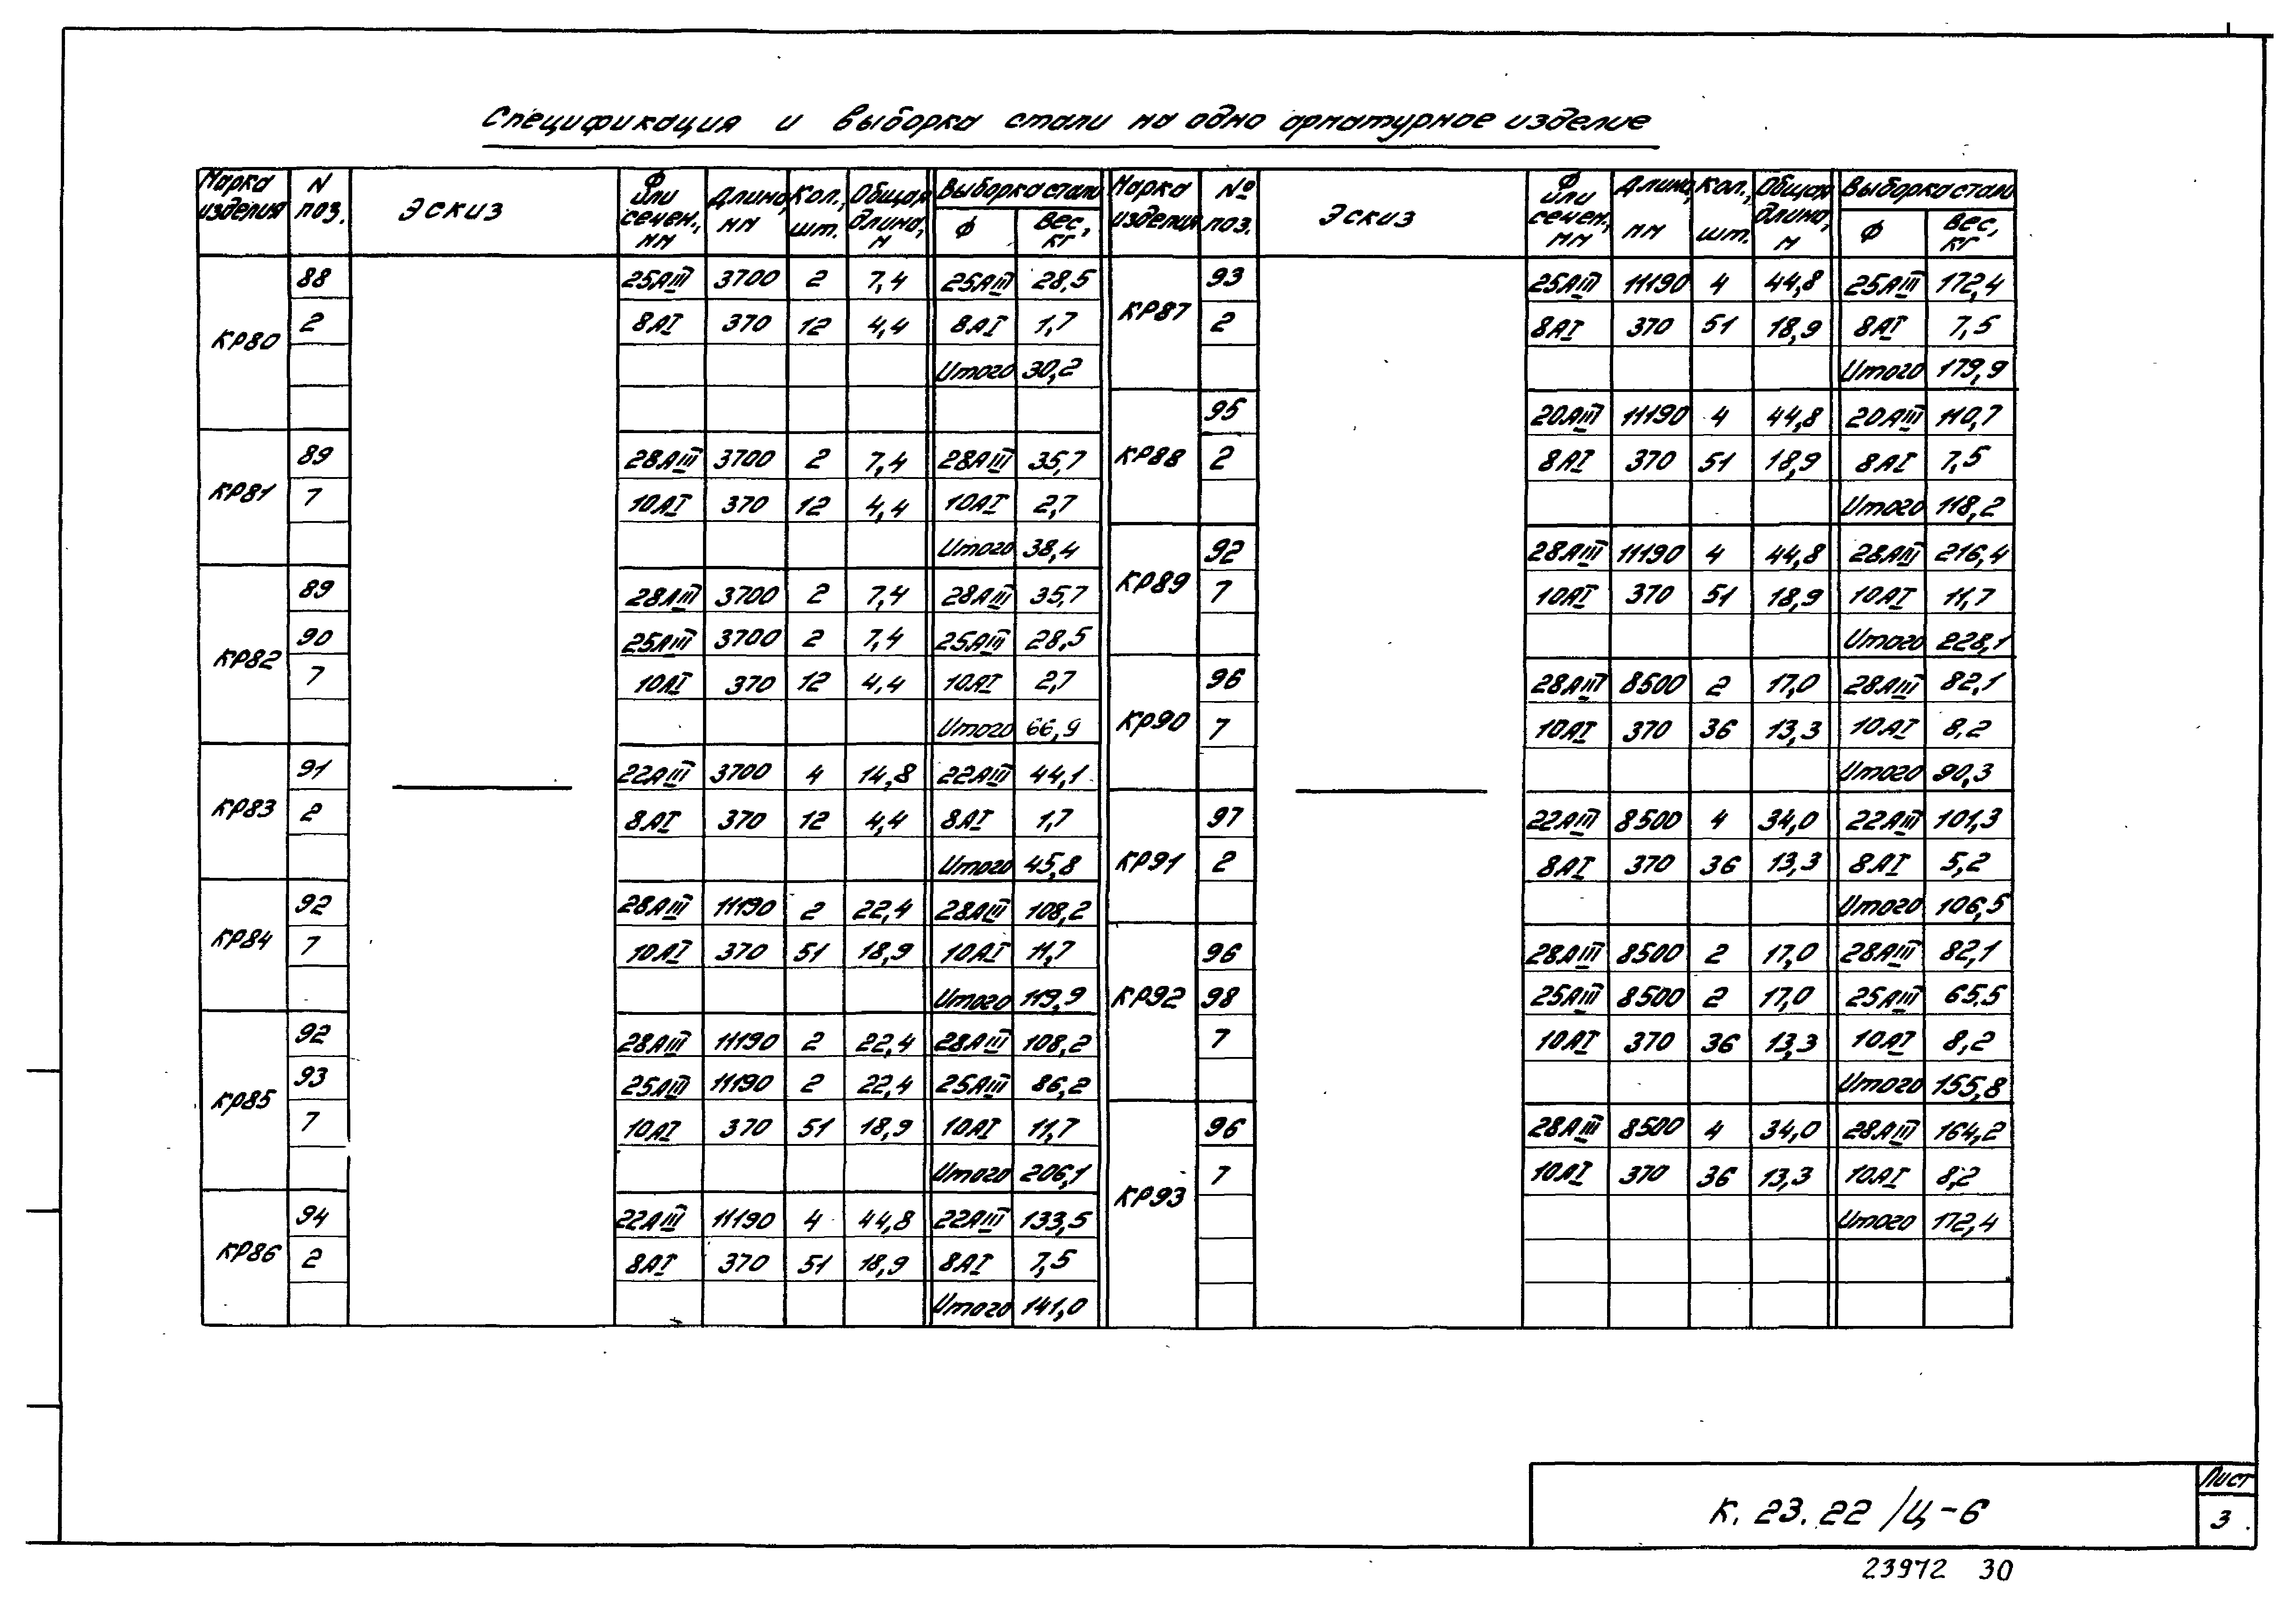 Спецификация и выборка стали на одно арматурное изделие
Марка изделия | N поз. | Эскиз | Ф или сечен., мм | Длина, мм | Кол., шт. | Общая длина, м | Выборка стали | Ф | Вес, кг
КР80 | 88 | 25АIII | 3700 | 2 | 7,4 | 25АIII | 28,5
2 | 8АI | 370 | 12 | 4,4 | 8АI | 1,7
Итого 30,2
КР81 | 89 | 28АIII | 3700 | 2 | 7,4 | 28АIII | 35,7
7 | 10АI | 370 | 12 | 4,4 | 10АI | 2,7
Итого 38,4
КР82 | 89 | 28АIII | 3700 | 2 | 7,4 | 28АIII | 35,7
90 | 25АIII | 3700 | 2 | 7,4 | 25АIII | 28,5
7 | 10АI | 370 | 12 | 4,4 | 10АI | 2,7
Итого 66,9
КР83 | 91 | 22АIII | 3700 | 4 | 14,8 | 22АIII | 44,1
2 | 8АI | 370 | 12 | 4,4 | 8АI | 1,7
Итого 45,8
КР84 | 92 | 28АIII | 11190 | 2 | 22,4 | 28АIII | 108,2
7 | 10АI | 370 | 51 | 18,9 | 10АI | 11,7
Итого 119,9
КР85 | 92 | 28АIII | 11190 | 2 | 22,4 | 28АIII | 108,2
93 | 25АIII | 11190 | 2 | 22,4 | 25АIII | 86,2
7 | 10АI | 370 | 51 | 18,9 | 10АI | 11,7
Итого 206,1
КР86 | 94 | 22АIII | 11190 | 4 | 44,8 | 22АIII | 133,5
2 | 8АI | 370 | 51 | 18,9 | 8АI | 7,5
Итого 141,0
Марка изделия | № поз. | Эскиз | Ф или сечен., мм | Длина, мм | Кол., шт. | Общая длина, м | Выборка стали | Ф | Вес, кг
КР87 | 93 | 25АIII | 11190 | 4 | 44,8 | 25АIII | 172,4
2 | 8АI | 370 | 51 | 18,9 | 8АI | 7,5
Итого 179,9
КР88 | 95 | 20АIII | 11190 | 4 | 44,8 | 20АIII | 110,7
2 | 8АI | 370 | 51 | 18,9 | 8АI | 7,5
Итого 118,2
КР89 | 92 | 28АIII | 11190 | 4 | 44,8 | 28АIII | 216,4
7 | 10АI | 370 | 51 | 18,9 | 10АI | 11,7
Итого 228,1
КР90 | 96 | 28АIII | 8500 | 2 | 17,0 | 28АIII | 82,1
7 | 10АI | 370 | 36 | 13,3 | 10АI | 8,2
Итого 90,3
КР91 | 97 | 22АIII | 8500 | 4 | 34,0 | 22АIII | 101,3
2 | 8АI | 370 | 36 | 13,3 | 8АI | 5,2
Итого 106,5
КР92 | 96 | 28АIII | 8500 | 2 | 17,0 | 28АIII | 82,1
98 | 25АIII | 8500 | 2 | 17,0 | 25АIII | 65,5
7 | 10АI | 370 | 36 | 13,3 | 10АI | 8,2
Итого 155,8
КР93 | 96 | 28АIII | 8500 | 4 | 34,0 | 28АIII | 164,2
7 | 10АI | 370 | 36 | 13,3 | 10АI | 8,2
Итого 172,4
К. 23.22 /Ц-6
Лист
3
23972 30